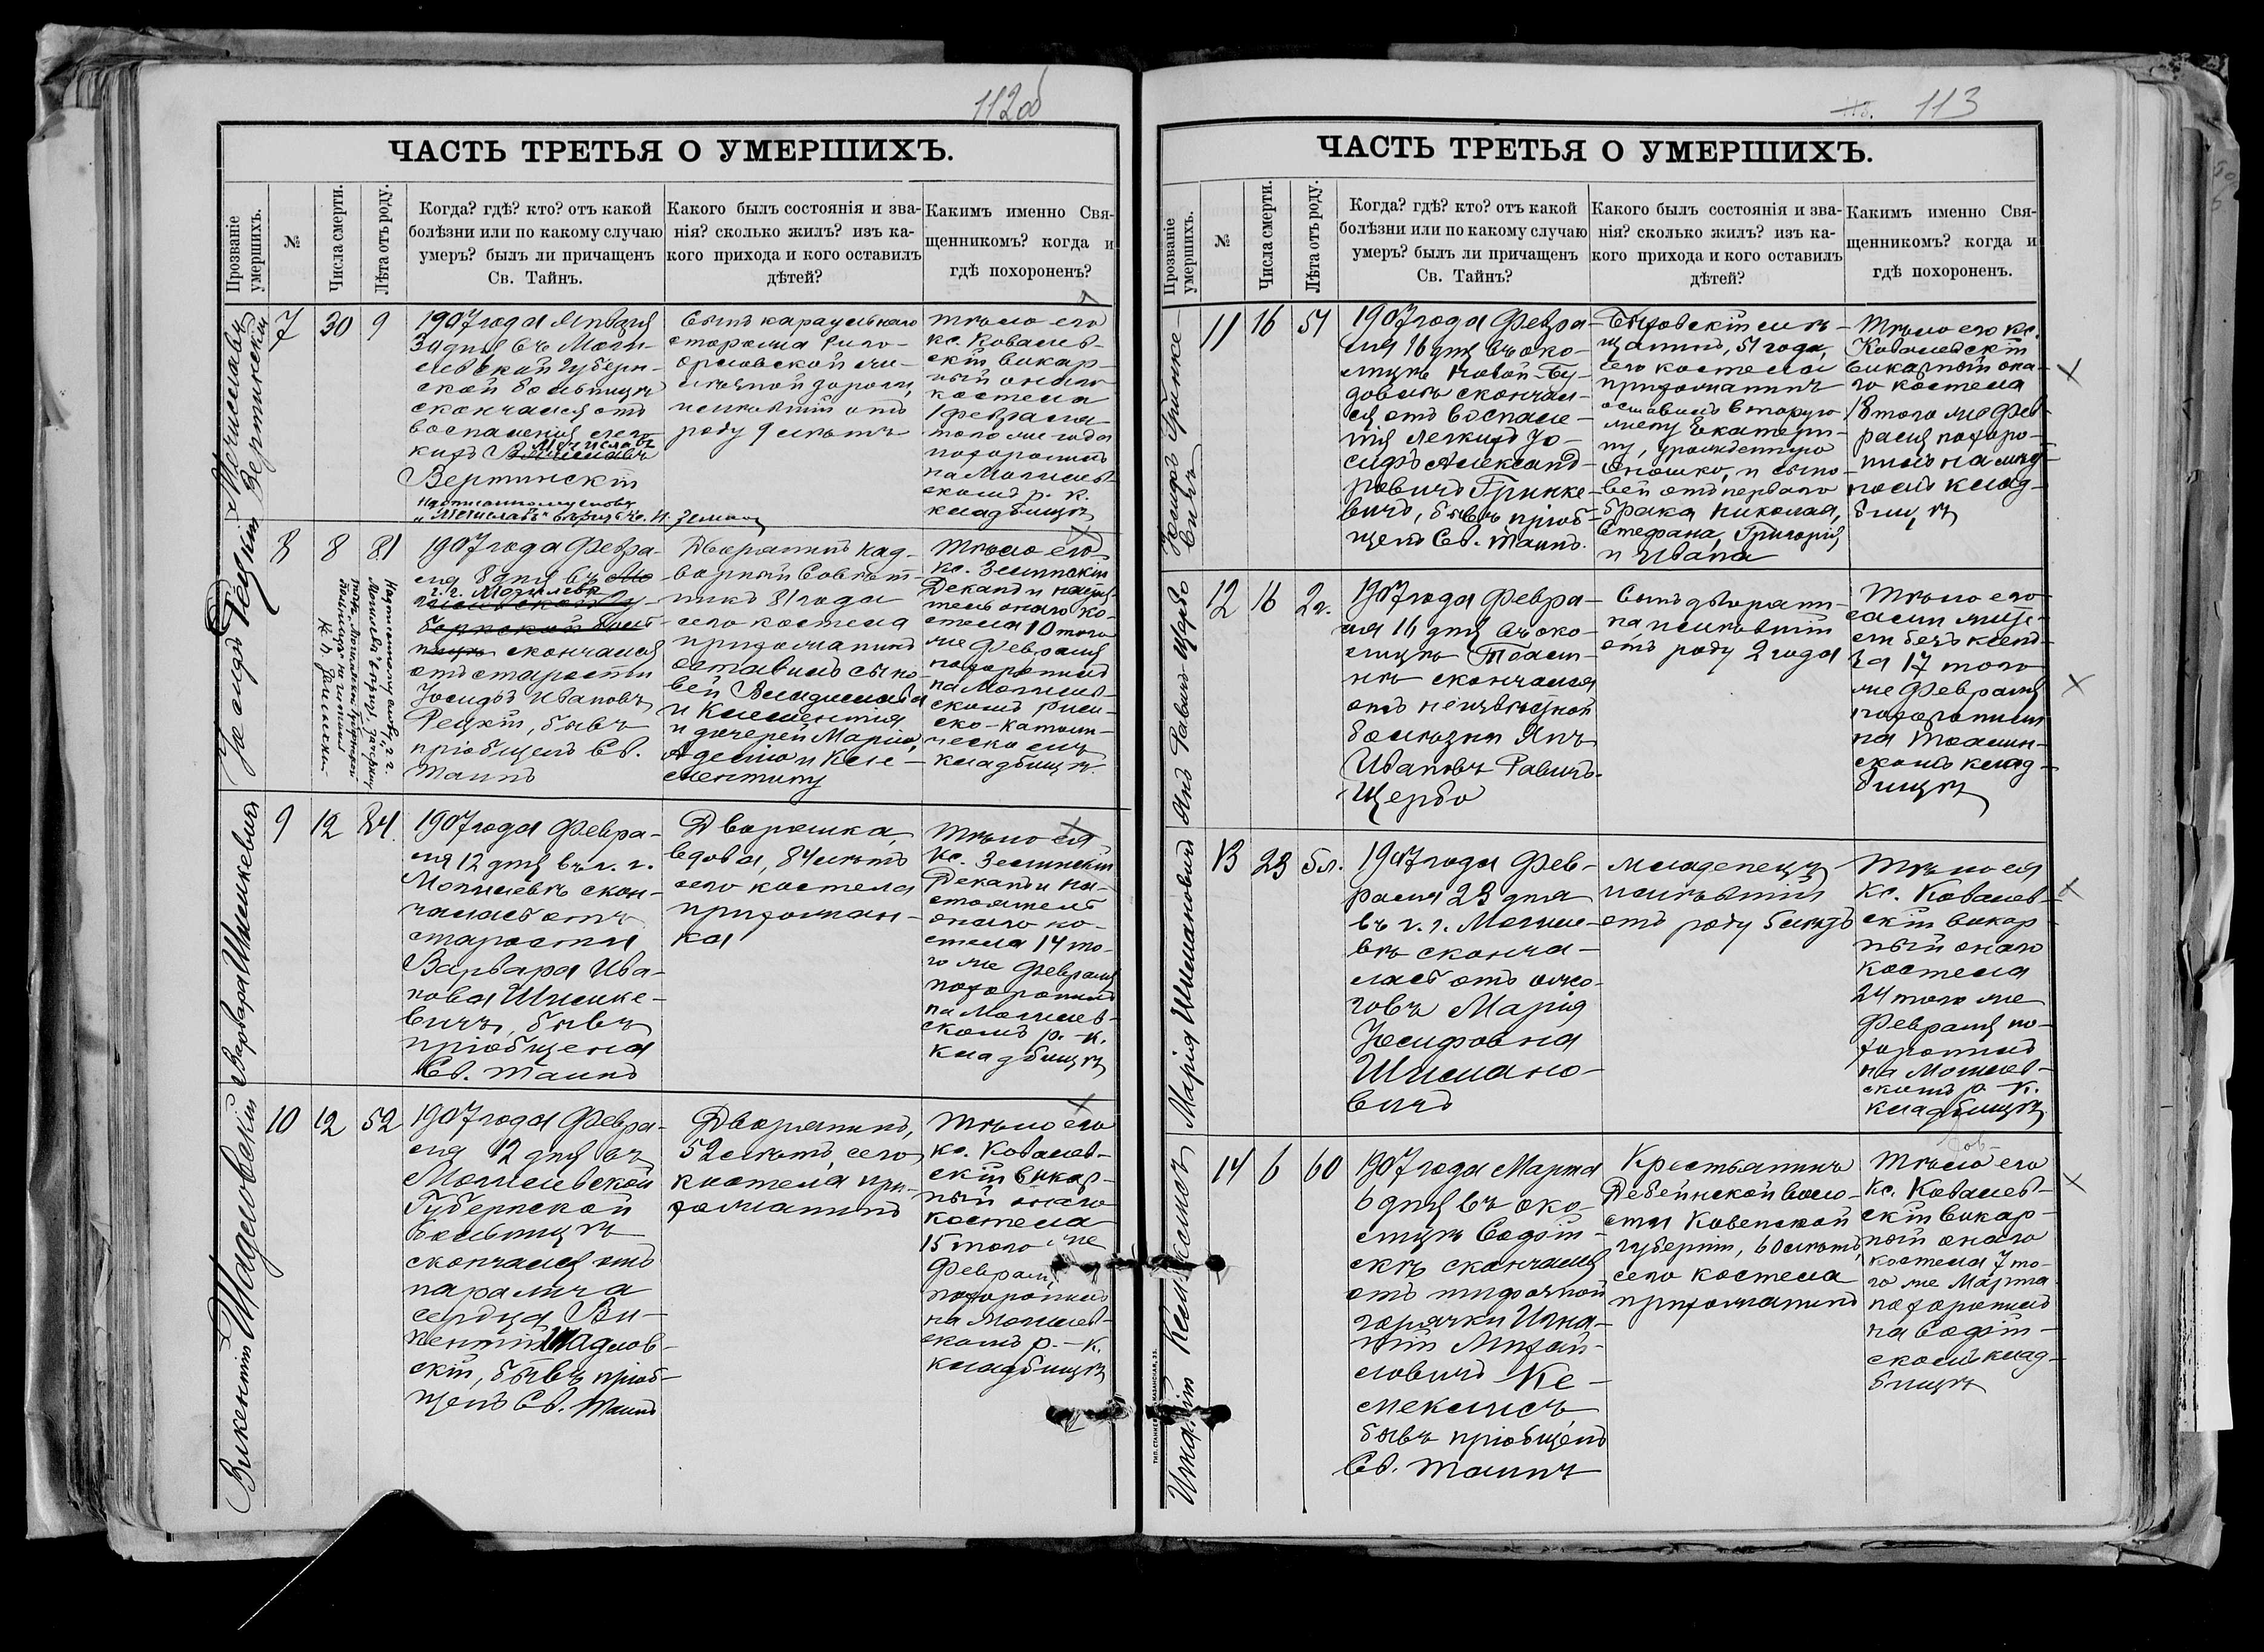 112об
ЧАСТЬ ТРЕТЬЯ О УМЕРШИХЪ.
Прозваніе умершихъ.
№
Числа смерти.
Лѣта отъ роду.
Когда? гдѣ? кто? отъ какой
болѣзни или по какому случаю
умеръ? былъ ли причащенъ
Св. Тайнъ.
Какого былъ состоянія и зва-
нія? сколько жилъ? изъ ка-
кого прихода и кого оставилъ
дѣтей?
Какимъ именно Свя-
щенникомъ? когда и
гдѣ похороненъ?
Мечиславъ
Вертинскій
7
30
9
1907 года Января
30 дня въ Моги-
левской Губерн-
ской больницѣ
скончался отъ
воспаленія лег-
кихъ Мечиславъ
Вертинскій
Сынъ караульнаго
сторожа Риго-
Орловской же-
лѣзной дороги,
имѣвшій отъ
роду 9 лѣтъ
Тѣло его
кс. Ковалев-
скій викар-
ный онаго
костела
1 февраля
того же года
похоронилъ
на Могилев-
скомъ р. к.
кладбищѣ
Іосифъ Рецкій
8
8
81
1907 года Февра-
ля 8 дня въ
г. г. Могилевѣ
скончался
отъ старости
Іосифъ Ивановъ
Рецкій, бывъ
пріобщенъ Св.
Таинъ
Дворянинъ Над-
ворный Совѣт-
никъ 81 года
сего костела
прихожанинъ
оставилъ сыно-
вей Владислава
и Клементія
и дочерей Марію,
Аделію и Кле-
ментину
Тѣло его
кс. Зелинскій
Деканъ и насто-
тель онаго ко-
стела 10 того
же Февраля
похоронилъ
на Могилев-
скомъ рим-
ско-католи-
ческомъ
кладбищѣ.
Варвара Шишкевичъ
9
12
84.
1907 года Февра-
ля 12 дня въ г. г.
Могилевѣ скон-
чалась отъ
старости
Варвара Ива-
нова Шишке-
вичъ, бывъ
пріобщена
Св. Таинъ
Дворянка,
вдова, 84 лѣтъ
сего костела
прихожан-
ка
Тѣло ея
кс. Зелинскій
Деканъ и на-
стоятель
онаго ко-
стела 14 то-
го же Февраля
похоронилъ
на Могилев-
скомъ р.-к.
кладбищѣ
Викентій Шадловскій
10
12
52
1907 года Февра-
ля 12 дня въ
Могилевской
Губернской
больницѣ
скончался отъ
паралича
сердца Ви-
кентій Шадлов-
скій, бывъ пріоб-
щенъ Св. Таинъ
Дворянинъ,
52 лѣтъ, сего
костела при-
хожанинъ
Тѣло его
кс. Ковалев-
скій викар-
ный онаго
костела
15 того же
Февраля
похоронилъ
на Могилев-
скомъ р.-к.
кладбищѣ
113
ЧАСТЬ ТРЕТЬЯ О УМЕРШИХЪ.
Прозваніе умершихъ.
№
Числа смерти.
Лѣта отъ роду.
Когда? гдѣ? кто? отъ какой
болѣзни или по какому случаю
умеръ? былъ ли причащенъ
Св. Тайнъ?
Какого былъ состоянія и зва-
нія? сколько жилъ? изъ ка-
кого прихода и кого оставилъ
дѣтей?
Какимъ именно Свя-
щенникомъ? когда и
гдѣ похороненъ.
Іосифъ Гринке-
вичъ
11
16
51
1907 года Февра-
ля 16 дня въ око-
лицѣ Новой-Бу-
довѣ скончал-
ся отъ воспале-
нія легкихъ Іо-
сифъ Александ-
ровичъ Гринке-
вичъ, бывъ пріоб-
щенъ Св. Таинъ.
Быховскій мѣ-
щанинъ, 51 года,
сего костела
прихожанинъ
оставилъ вторую
жену Екатери-
ну, урожденную
Оношко, и сыно-
вей отъ перваго
брака Николая,
Стефана, Григорія
и Ивана
Тѣло его кс.
Ковалевскій
викарный она-
го костела
18 того же Фев-
раля похоро-
нилъ на
номъ клад-
бищѣ
Янъ Равичъ Щербо
12
16
2 г.
1907 года Февра-
ля 16 дня въ око-
лицѣ
скончался
отъ неизвѣстной
болѣзни Янъ
Ивановъ Равичъ-
Щербо
Сынъ дворяни-
на имѣвшій
отъ роду 2 года
Тѣло его
сами
безъ ксенд-
за 17 того
же Февраля
похоронили
на
скомъ клад-
бищѣ
Марія Шимановичъ
13
23
6 л.
1907 года Фев-
раля 23 дня
въ г. г. Могиле-
вѣ сконча-
лась отъ ожо-
говъ Марія
Іосифовна
Шимано-
вичъ
младенецъ
имѣвшій
отъ роду 6 лѣтъ
Тѣло ея
кс. Ковалев-
скій викар-
ный онаго
костела
24 того же
Февраля по-
хоронилъ
на Могилев-
скомъ р.-к.
кладбищѣ
14
6
60
1907 года Марта
6 дня въ око-
лицѣ
скончался
отъ тифозной
горячки Игна-
тій Михай-
ловичъ Ке-
меклисъ,
бывъ пріобщенъ
Св. Таинъ
Крестьянинъ
Дебейнской воло-
сти Ковенской
губерніи, 60 лѣтъ,
сего костела
прихожанинъ
Тѣло его
кс. Ковалев-
скій викар-
ный онаго
костела 7 то-
го же Марта
похоронилъ
на
скомъ клад-
бищѣ